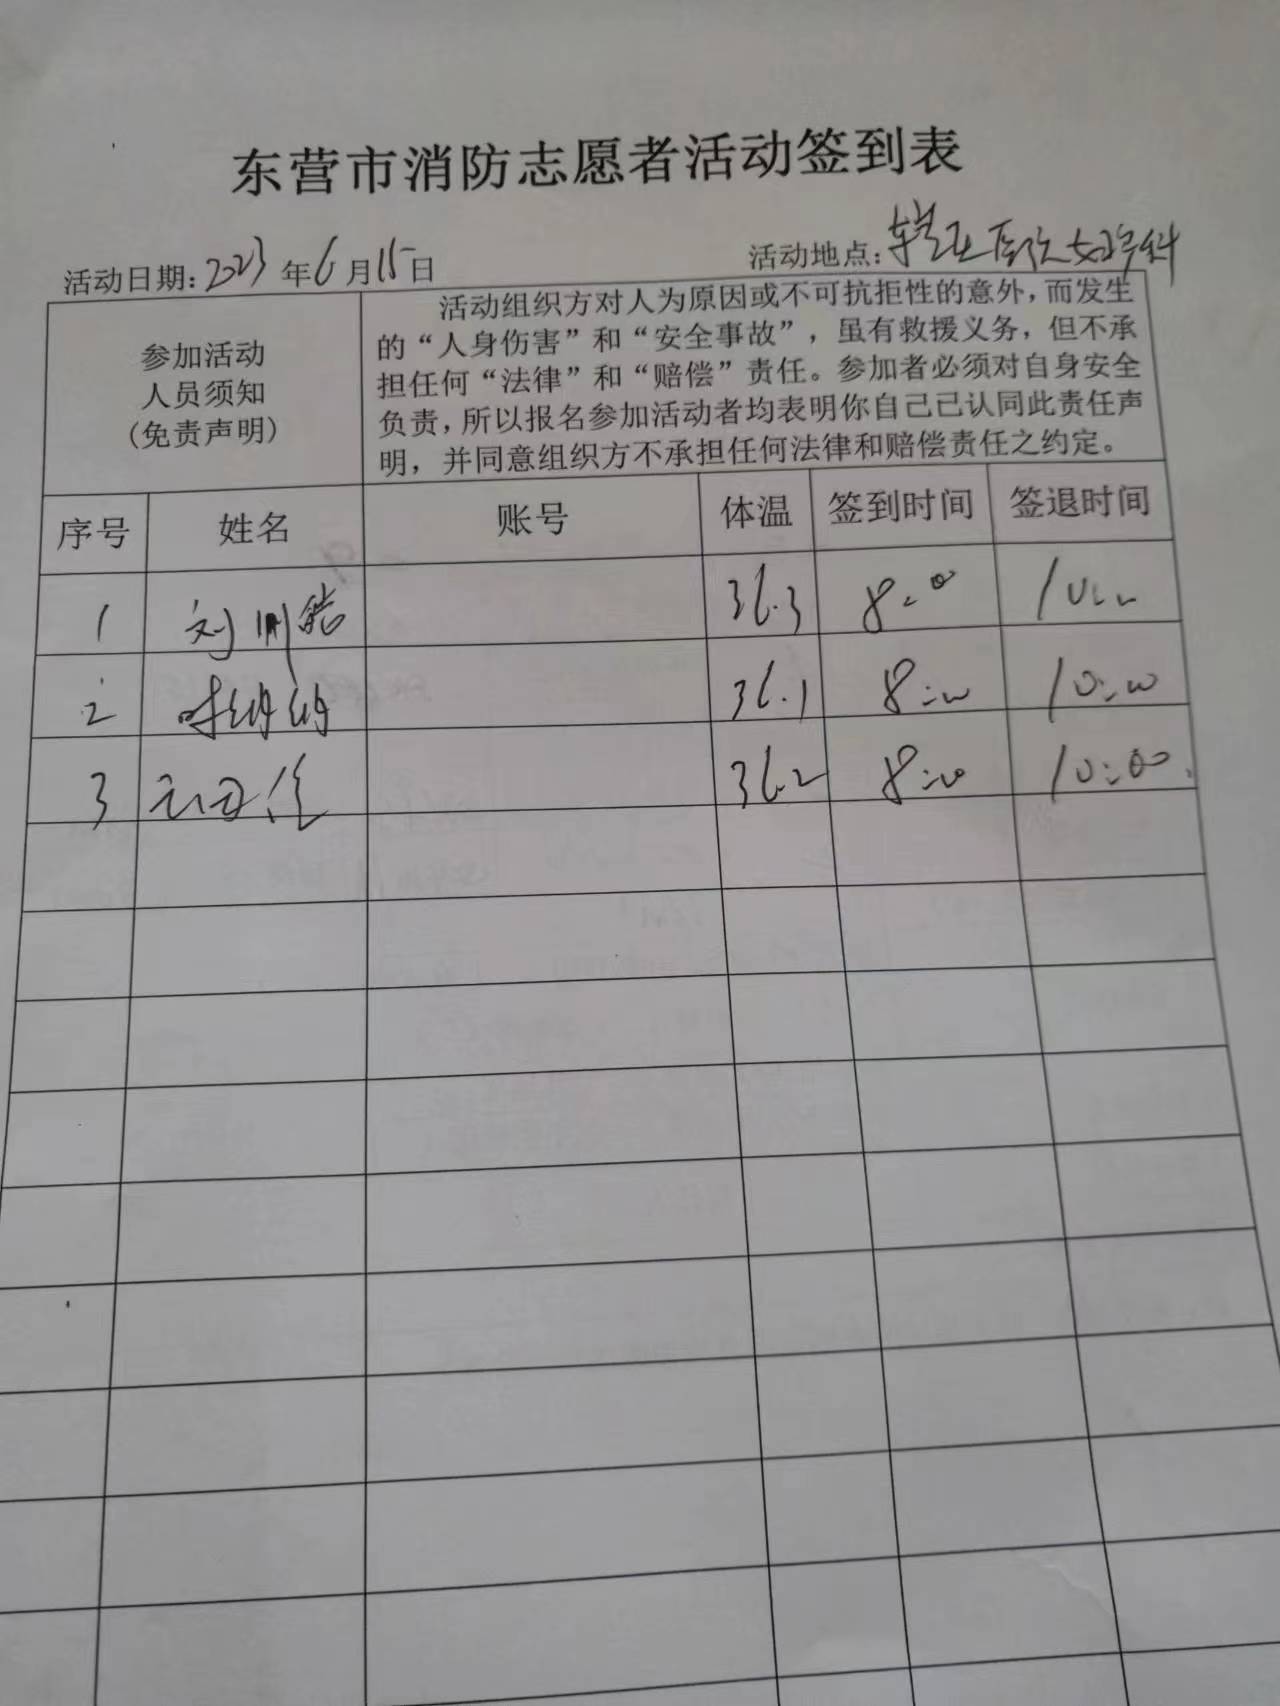 东营市消防志愿者活动签到表
活动日期:2023年6月15日 活动地点:
参加活动
人员须知
(免责声明)
活动组织方对人为原因或不可抗拒性的意外,而发生
的“人身伤害”和“安全事故”,虽有救援义务,但不承
担任何“法律”和“赔偿”责任。参加者必须对自身安全
负责,所以报名参加活动者均表明你自己已认同此责任声
明,并同意组织方不承担任何法律和赔偿责任之约定。
序号 姓名 账号 体温 签到时间 签退时间
1 刘 36.3 8:00 10:00
2 36.1 8:00 10:00
3 36.2 8:00 10:00